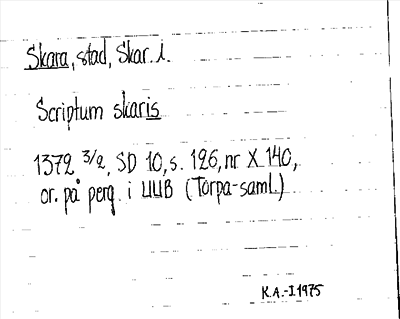 Skara, stad, Skar. l.
Scriptum skaris
1372 3/2, SD 10, s. 126, nr X 140,
or. på perg. i UUB (Torpa-saml.)
K.A.-I.1975